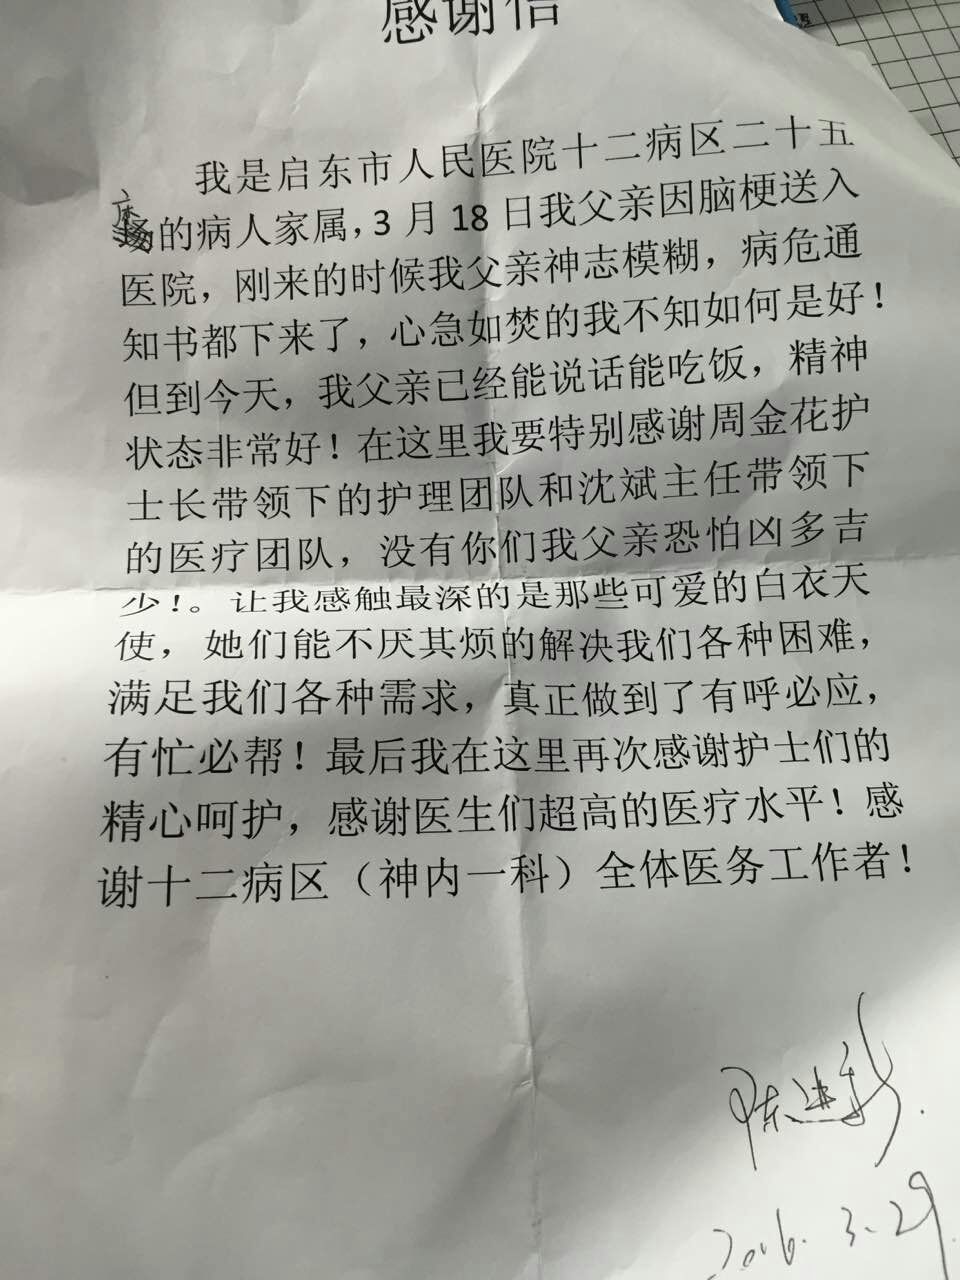 感谢信
我是启东市人民医院十二病区二十五
床的病人家属，3 月 18 日我父亲因脑梗送入
医院，刚来的时候我父亲神志模糊，病危通
知书都下来了，心急如焚的我不知如何是好！
但到今天，我父亲已经能说话能吃饭，精神
状态非常好！在这里我要特别感谢周金花护
士长带领下的护理团队和沈斌主任带领下
的医疗团队，没有你们我父亲恐怕凶多吉
少！。让我感触最深的是那些可爱的白衣天
使，她们能不厌其烦的解决我们各种困难，
满足我们各种需求，真正做到了有呼必应，
有忙必帮！最后我在这里再次感谢护士们的
精心呵护，感谢医生们超高的医疗水平！感
谢十二病区（神内一科）全体医务工作者！
2016. 3.29